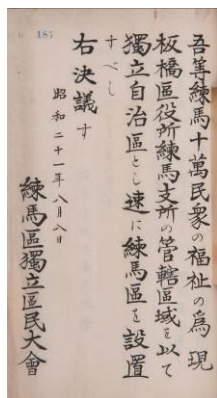 187
吾等練馬十萬民衆の福祉の為現
板橋區役所練馬支所の管轄區域を以て
獨立自治區とし速に練馬區を設置
すべし
右決議す
昭和二十一年八月八日
練馬區獨立區民大會